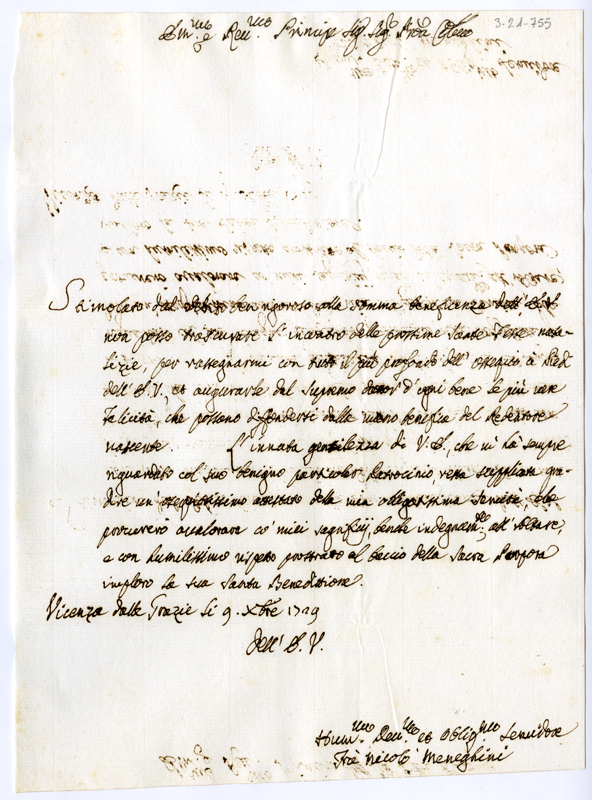 3-21-755
Em.mo e Rev.mo Principe Sig.r Sig.r P.rone Col.mo
Stimolato dal debito ben rigoroso alla somma beneficenza dell' E.V.
non posso trascurare l'incontro delle prossime Sante Feste nata-
lizie, per rassegnarmi con tutto il più profondo dell' ossequio a Piedi
dell' E.V., et augurarle dal supremo dator d'ogni bene le più vere
felicità, che possono diffondersi dalla mano benefica del Redentore
nascente. L'innata gentilezza di V.E. che mi ha sempre
riguardato col suo benigno particolar Patrocinio, resta supplicata gra-
dire un' ossequiosissimo attestato della mia obligatissima servitù, che
procurerò avalorare co' miei sagrificij, benche indegnam.te all' Altare,
e con humilissimo rispetto prostrato al baccio della Sacra Porpora
imploro la sua Santa Benedittione.
Vicenza dalle Grazie li 9. Xbre 1729
Dell' E. V.
Hum.mo Dev.mo et Oblig.mo Servidore
Frè Nicolò Meneghini